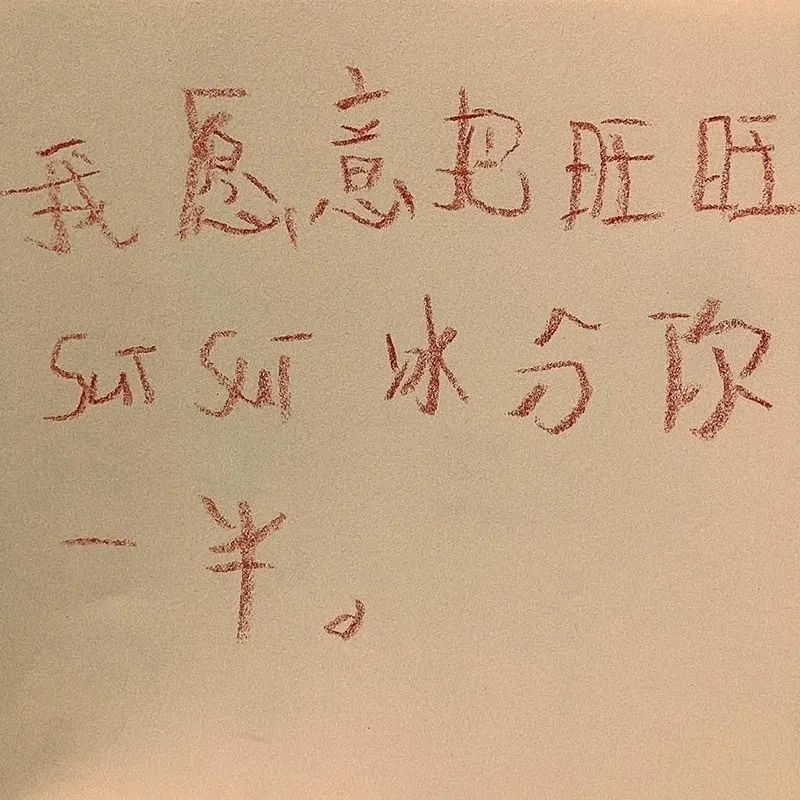 我愿意把旺旺
SUT SUT 冰分你
一半。